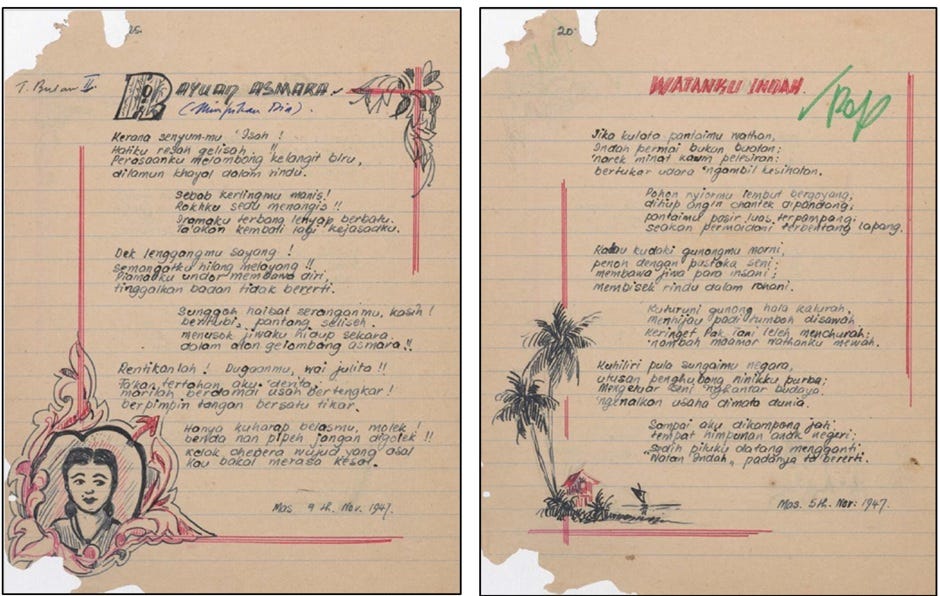 25.
T. Bulan II.
BAYUAN ASMARA
(Himpunan Dia).
Kerana senyum-mu 'Isah !
Hatiku resah gelisah. !!
Perasaanku melambong kelangit biru,
dilamun khayal dalam rindu.
Sebab kerlingmu manis!
Rohku sedu menangis !!
Iramaku terbang lenyap berbatu.
Ta'akan kembali lagi kejasadku.
Dek lenggangmu sayang !
semangatku hilang melayang !!
undor membawa diri,
tinggalkan badan tidak bererti.
Sunggoh haibat seranganmu, kasih !
bertubi, pantang seliseh.
menusok jiwaku hidup sekara.
dalam alon gelombang asmara !!
Rentikanlah ! Dugaanmu, wai julita !!
Ta'kan tertahan, aku derita,
marilah berdamai usah bertengkar !
berpimpin tangan bersatu tikar.
Hanya kuharap belasmu, molek !
benda nan pipeh jangan digolek !!
kelak chedera wujud yang asal
kau bakal merasa kesal.
Mas 9 th. Nov. 1947.
20.
WATANKU INDAH.
Jika kulata pantaimu wathan,
Indah permai bukan buatan;
'narek minat kaum pelesiran;
bertukar udara 'ngambil kesihatan.
Pohon nyiormu lembut bergoyang,
ditiup angin chantek dipandang;
pantaimu pasir luas terpampang;
seakan permaidani terbentang lapang.
Kalau kudaki gunongmu murni,
penoh dengan pustaka seni;
membawa jiwa para insani;
membisek rindu dalam rohani.
Kuturuni gunong hala kalurah,
Menghijau padi tumboh disawah
keringat Pak Tani leleh menchurah;
'nambah maamor wathanku mewah.
Kuhiliri pula sungaimu negara,
utusan penghubong ninikku purba;
seni 'nghantar budaya,
'ngenalkan usaha dimata dunia.
Sampai aku dikampong jati;
tempat himpunan anak negeri;
Sedih piluku datang mengganti
"Watan Indah" padanya ta' bererti.
Mas. 5th. Nov: 1947.